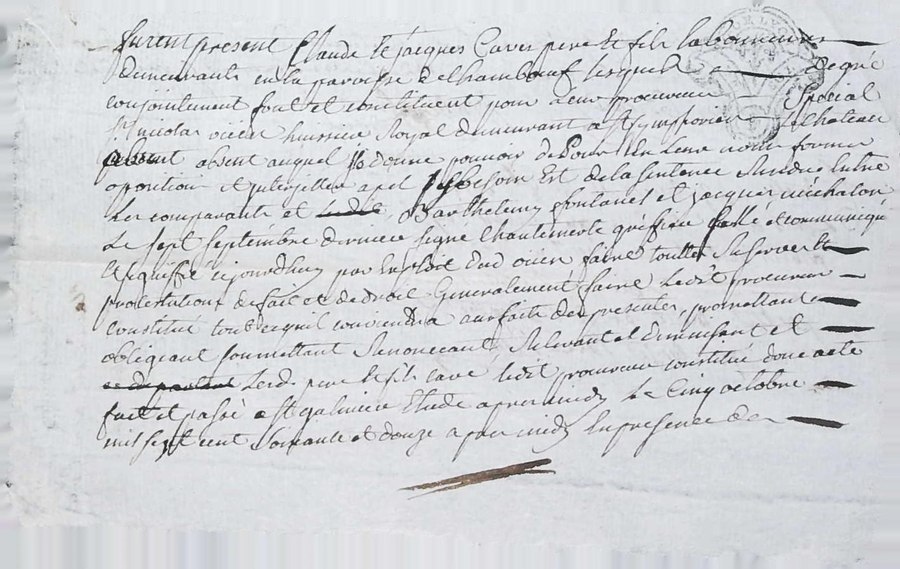 furent present Claude et jacques Caves pere et fils laboureurs
demeurants en la paroisse de Chambeuf lesquels de gré
conjointement font et constituent pour leur procureur Special
st nicolas huissier Royal demeurant a st symphorien le Chateau
absent auquel ils donne pouvoir de pour et en leur nom former
opposition et interjetter apel sil besoin Est de la sentence Rendue Entre
Les comparants et Barthelemy fontanes et jacques michalon
Le sept septembre derniere signé Chantemerle greffier et communiqué
et signifié ajourdhuy par Exploit faire toutte Reserve et
protestations de fait et de droit Generalement faire Ledit procureur
constitué tout ce quil conviendra au faite des presentes, promettant
obligeant soumettant Renonceant, Relevant et Et
Lesd. pere et fils cave ledit procureur constitué dont acte
fait et passé a st galmier Etude apres midy Le Cinq octobre
mil sept cent soixante et douze apres midy En presence de